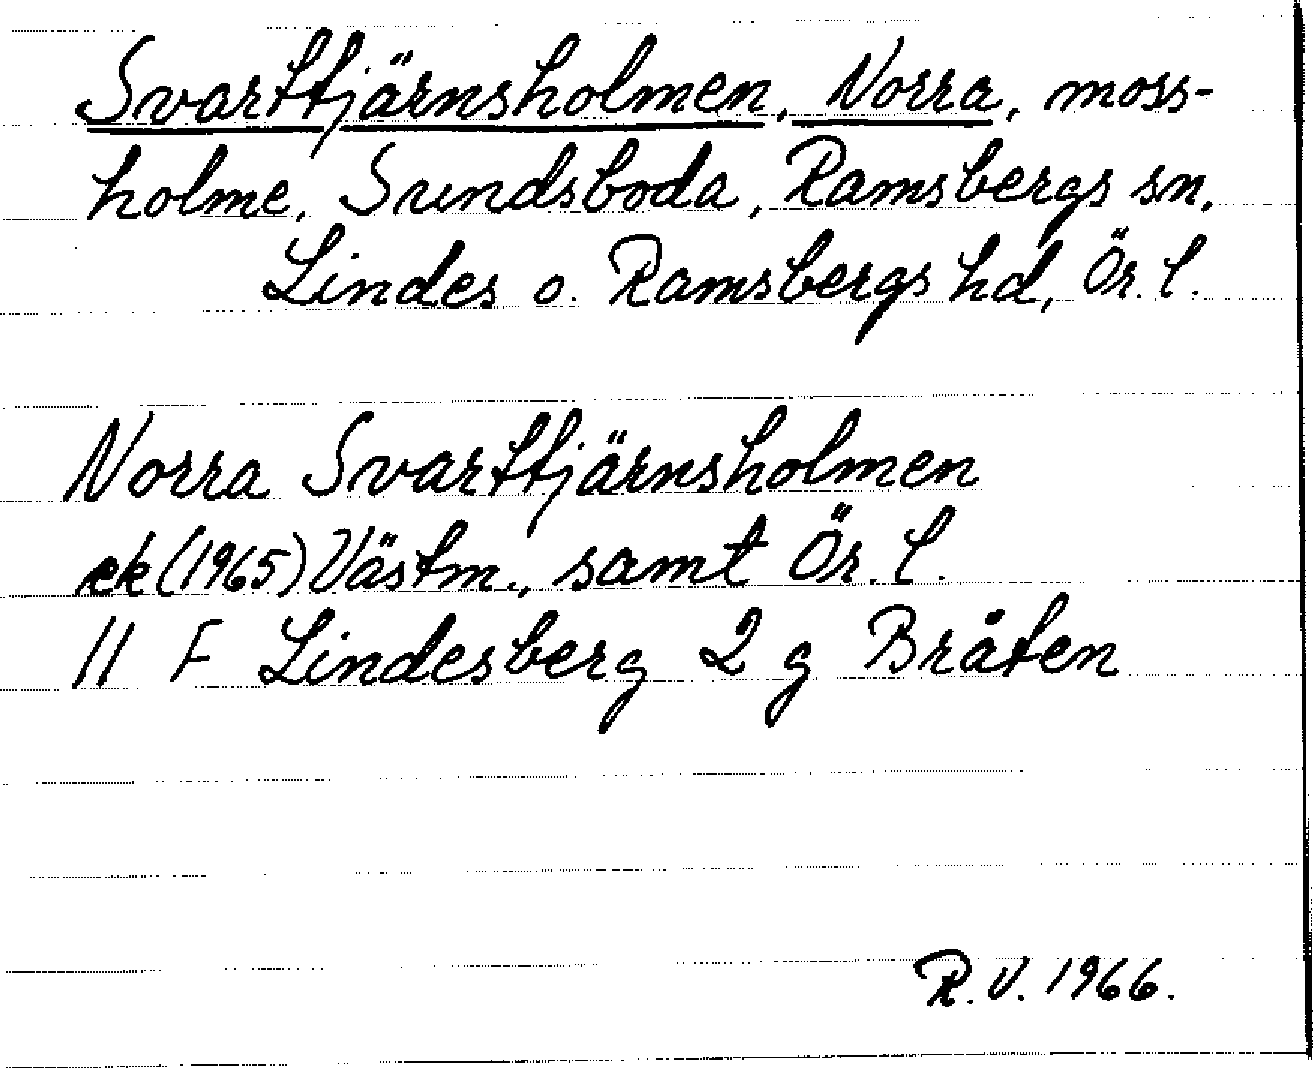 Svarttjärnsholmen, Norra, moss-
holme, Sundsboda, Ramsbergs sn,
Lindes o. Ramsbergs hd, Ör. l.
Norra Svarttjärnsholmen
ek (1965) Västm., samt Ör. l.
11 F Lindesberg 2 g Bråten
R.V. 1966.